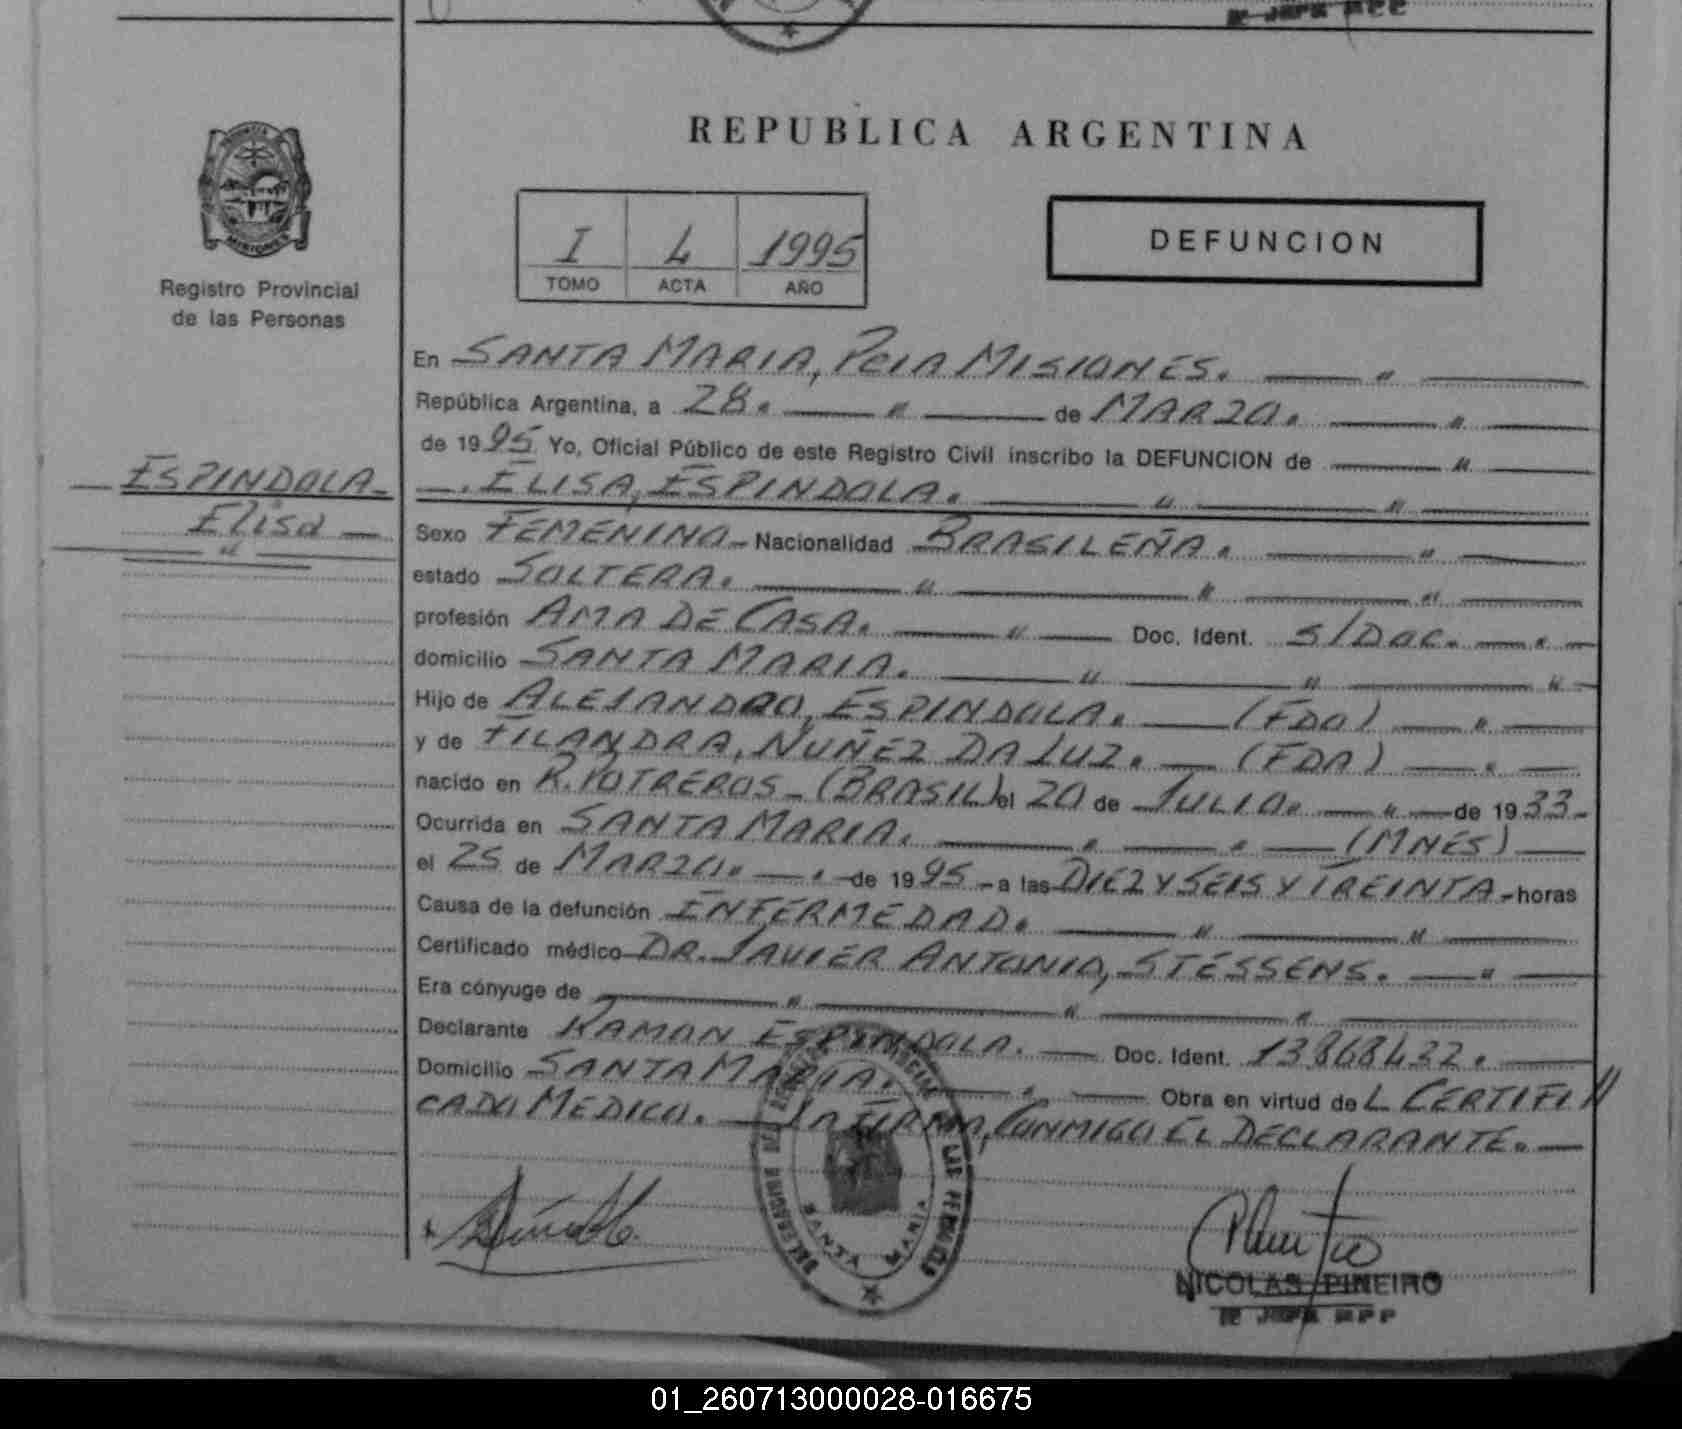 REPUBLICA ARGENTINA
MISIONES
Registro Provincial
de las Personas
I L 1995
TOMO ACTA AÑO
DEFUNCION
En SANTA MARIA, PCIA MISIONES. — " —
República Argentina, a 28. — " — de MARZO. — " —
de 1995. Yo, Oficial Público de este Registro Civil inscribo la DEFUNCION de — " —
—. ELISA, ESPINDOLA. — " — " —
— ESPINDOLA —
Elisa —
— " —
Sexo FEMENINO — Nacionalidad BRASILEÑA. — " —
estado SOLTERA. — " — " — " —
profesión AMA DE CASA. — " — Doc. Ident. S/DOC. — " —
domicilio SANTA MARIA. — " — " — " —
Hijo de ALEJANDRO, ESPINDOLA. — (FDO) — " —
y de FILANDRA, NUÑEZ DA LUZ. — (FDA) — " —
nacido en R. POTREROS — (BRASIL) el 20 de JULIO. — " — de 1933 —
Ocurrida en SANTA MARIA. — " — " — (MNES) —
el 25 de MARZO. — " — de 1995 — a las DIEZ Y SEIS Y TREINTA — horas
Causa de la defunción ENFERMEDAD. — " — " —
Certificado médico — DR. JAVIER ANTONIO, STESSENS. — " —
Era cónyuge de — " — " — " —
Declarante RAMON ESPINDOLA. — Doc. Ident. 13868432. —
Domicilio SANTA MARIA. — " — Obra en virtud de L CERTIFI //
CADO MEDICO. — LA FIRMA, CONMIGO EL DECLARANTE. —
SANTA MARIA
NICOLAS PINEIRO
01_260713000028-016675